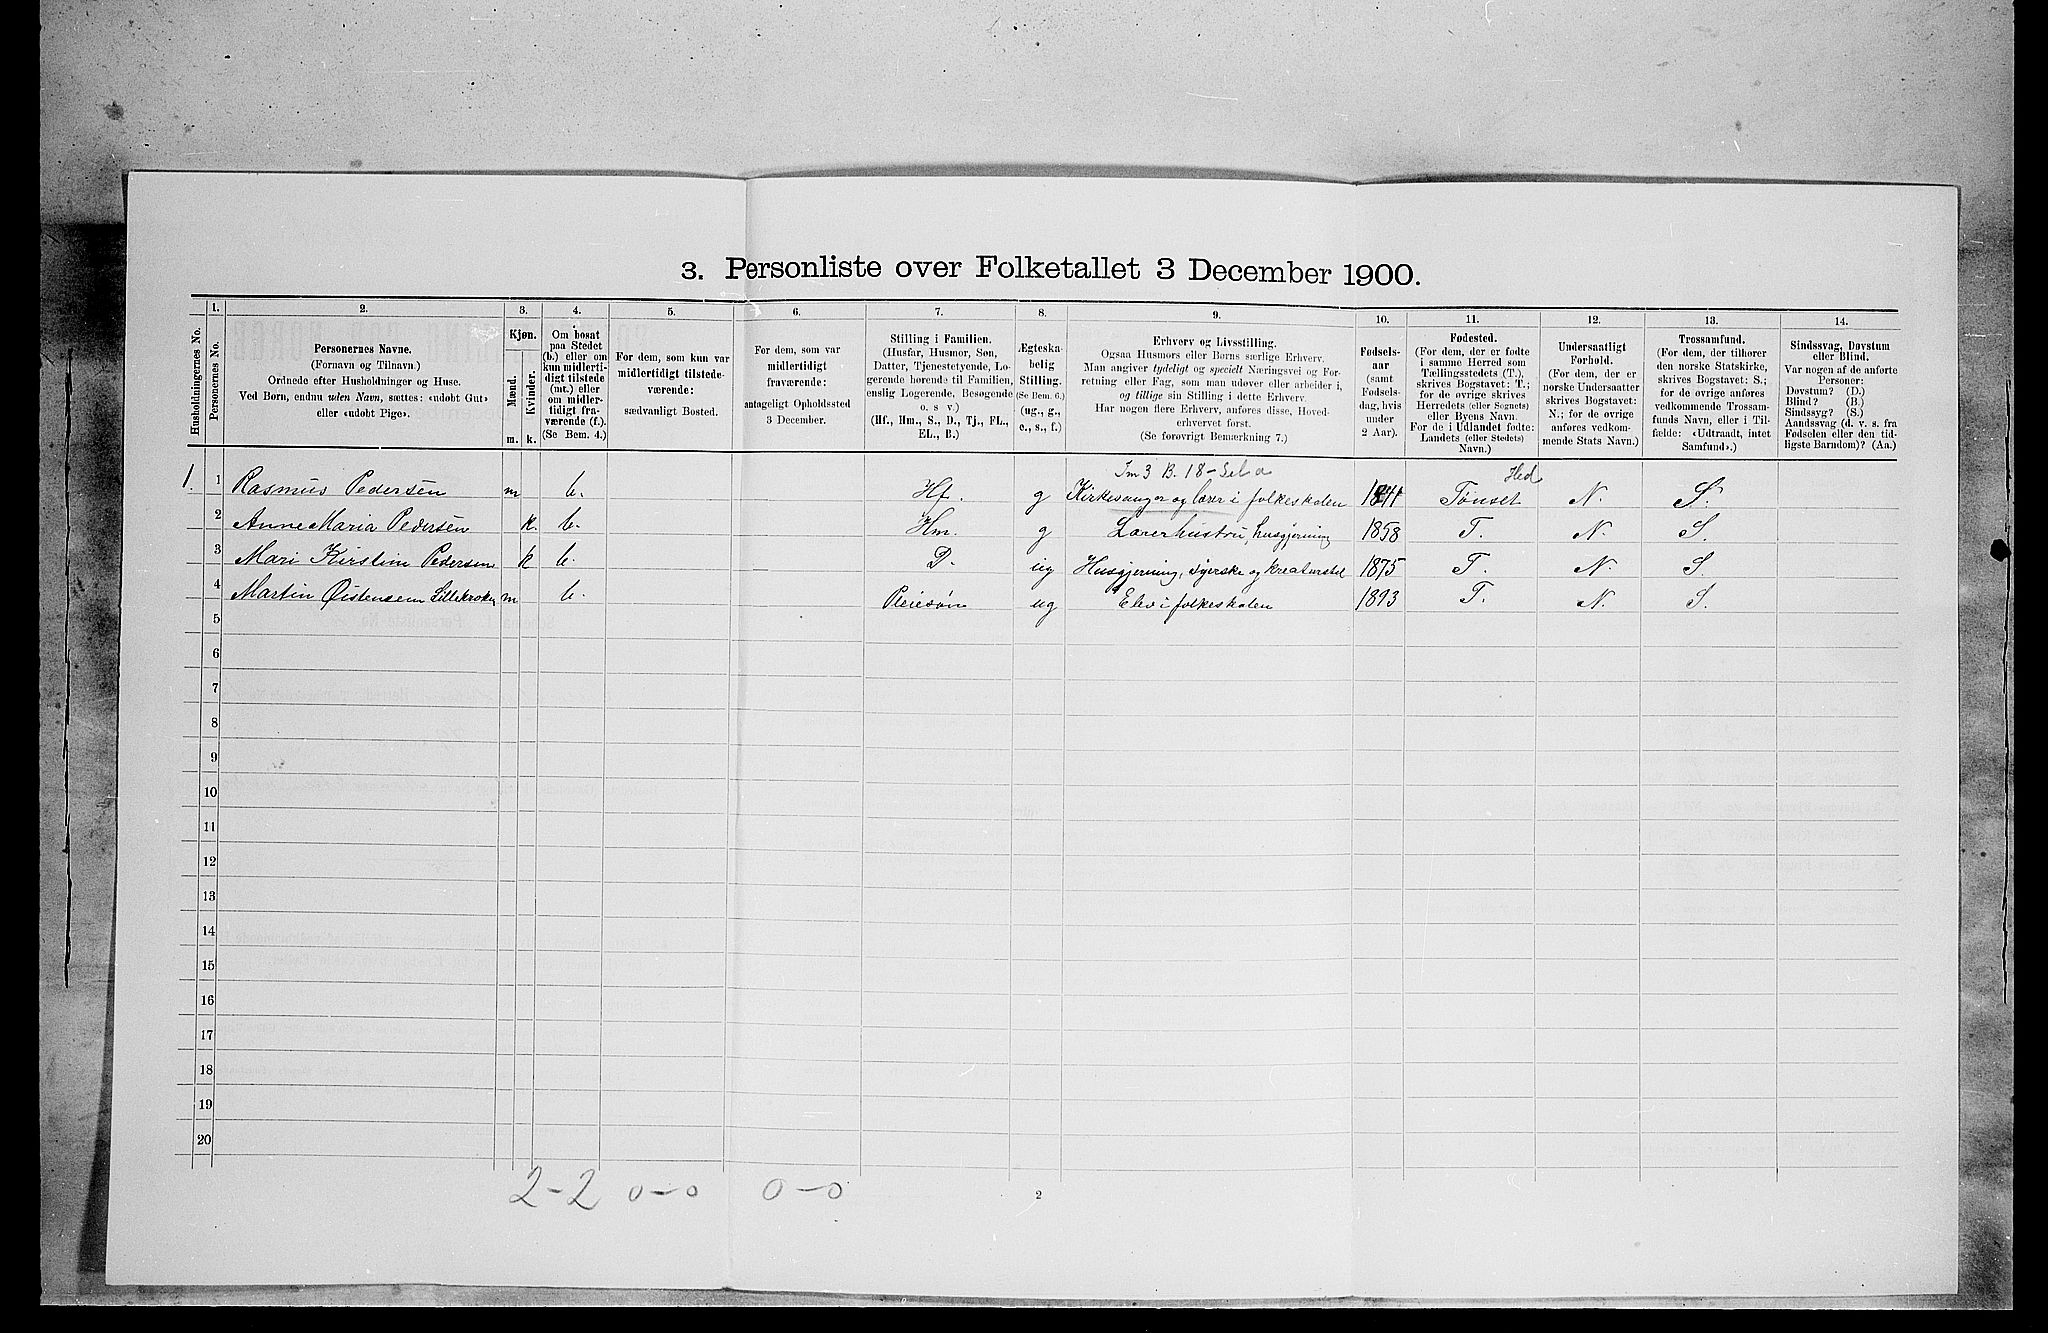 3. Personliste over Folketallet 3 December 1900.
Husholdningernes No.
1.
Personernes No.
2.
Personernes Navne.
(Fornavn og Tilnavn.)
Ordnede efter Husholdninger og Huse.
Ved Børn, endnu uden Navn, sættes: «udøbt Gut»
eller «udøbt Pige».
3.
Kjøn.
Mænd.
Kvinder.
m. k.
4.
Om bosat
paa Stedet
(b.) eller om
kun midlerti-
digt tilstede
(mt.) eller
om midler-
tidigt fra-
værende (f.).
(Se Bem. 4.)
5.
For dem, som kun var
midlertidigt tilstede-
værende:
sædvanligt Bosted.
6.
For dem, som var
midlertidigt
fraværende:
antageligt Opholdssted
3 December.
7.
Stilling i Familien.
(Husfar, Husmor, Søn,
Datter, Tjenestetyende, Lo-
gerende hørende til Familien,
enslig Logerende, Besøgende
o. s. v.)
(Hf., Hm., S., D., Tj., FL.,
EL., B.)
8.
Ægteska-
belig
Stilling.
(Se Bem. 6.)
(ug., g.,
e., s., f.)
9.
Erhverv og Livsstilling.
Ogsaa Husmors eller Børns særlige Erhverv.
Man angiver tydeligt og specielt Næringsvei og For-
retning eller Fag, som man udøver eller arbeider i,
og tillige sin Stilling i dette Erhverv.
Har nogen flere Erhverv, anføres disse, Hoved-
erhvervet først.
(Se forøvrigt Bemærkning 7.)
10.
Fødsels-
aar
(samt
Fødsels-
dag, hvis
under
2 Aar).
11.
Fødested.
(For dem, der er fødte
i samme Herred som
Tællingsstedets (T.),
skrives Bogstavet: T.;
for de øvrige skrives
Herredets (eller Sognets)
eller Byens Navn.
For de i Udlandet fødte:
Landets (eller Stedets)
Navn.)
12.
Undersaatligt
Forhold.
(For dem, der er
norske Undersaatter
skrives Bogstavet:
N.; for de øvrige
anføres vedkom-
mende Stats Navn.)
13.
Trossamfund.
(For dem, der tilhører
den norske Statskirke,
skrives Bogstavet: S.;
for de øvrige anføres
vedkommende Trossam-
funds Navn, eller i Til-
fælde: «Udtraadt, intet
Samfund».)
14.
Sindssvag, Døvstum
eller Blind.
Var nogen af de anførte
Personer:
Døvstum? (D.)
Blind? (B.)
Sindssyg? (S.)
Aandssvag (d. v. s. fra
Fødselen eller den tid-
ligste Barndom)? (Aa.)
Hed
1. 1 Rasmus Pedersen m b. Hf. g Kirkesanger og lærer i folkeskolen 1841 Tønset N. S.
2 Anne Maria Pedersen k. b. Hm. g Lærerhustru, husgjerning 1858 T. N. S.
3 Mari Kirstine Pedersen k b. D. ug Husgjerning, syerske og kreaturstel 1875 T. N. S.
4 Martin Øistensen Lillekroken m b. Pleiesøn ug Elev i folkeskolen 1893 T. N. S.
5
6
7
8
9
10
11
12
13
14
15
16
17
18
19
20
2-2 0-0 0-0
2